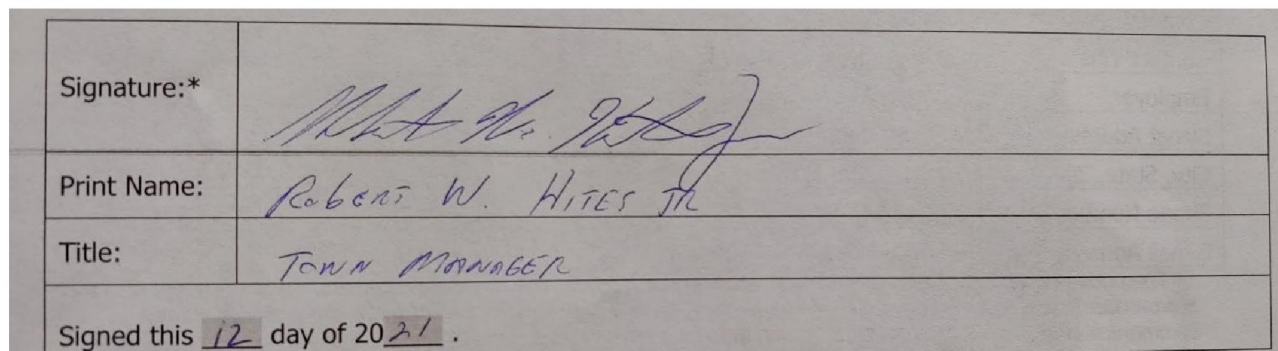 Signature:*
Print Name: Robert W. Hites JR
Title: Town Manager
Signed this 12 day of 2021.